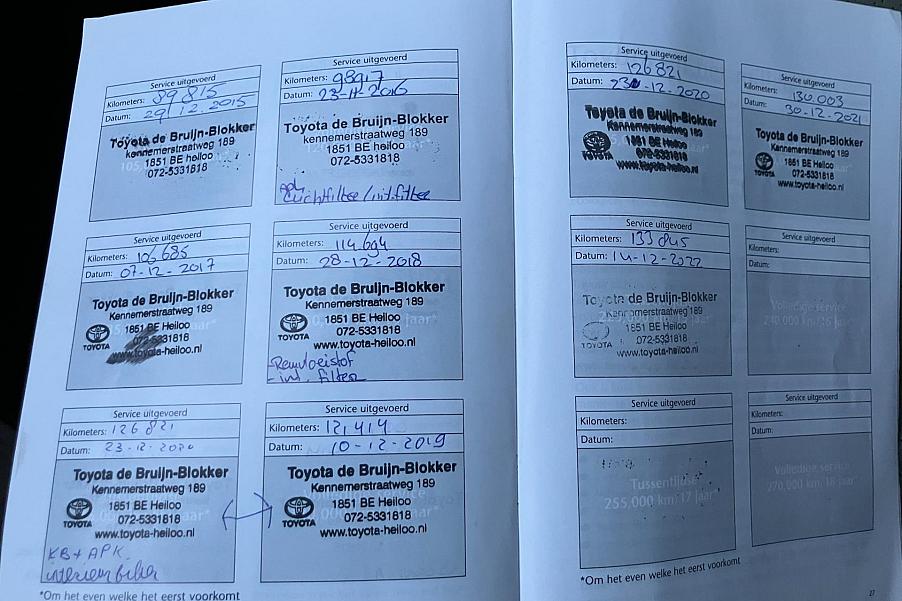 Service uitgevoerd
Kilometers: 89815
Datum: 29/12.2015
Toyota de Bruijn-Blokker
Kennemerstraatweg 189
1851 BE Heiloo
072-5331818
Service uitgevoerd
Kilometers: 98917
Datum: 23-11-2016
Toyota de Bruijn-Blokker
kennemerstraatweg 189
1851 BE Heiloo
072-5331818
Luchtfilter/int.filter
Service uitgevoerd
Kilometers: 106685
Datum: 07-12-2017
Toyota de Bruijn-Blokker
Kennemerstraatweg 189
1851 BE Heiloo
072-5331818
www.toyota-heiloo.nl
TOYOTA
Service uitgevoerd
Kilometers: 114694
Datum: 28-12-2018
Toyota de Bruijn-Blokker
Kennemerstraatweg 189
1851 BE Heiloo
072-5331818
www.toyota-heiloo.nl
TOYOTA
-Remvloeistof
- int. filter
Service uitgevoerd
Kilometers: 126821
Datum: 23-12-2020
Toyota de Bruijn-Blokker
Kennemerstraatweg 189
1851 BE Heiloo
072-5331818
www.toyota-heiloo.nl
TOYOTA
KB+APK
Service uitgevoerd
Kilometers: 121,414
Datum: 10-12-2019
Toyota de Bruijn-Blokker
Kennemerstraatweg 189
1851 BE Heiloo
072-5331818
www.toyota-heiloo.nl
TOYOTA
*Om het even welke het eerst voorkomt
Service uitgevoerd
Kilometers: 126821
Datum: 23-12-2020
Toyota de Bruijn-Blokker
Kennemerstraatweg 189
1851 BE Heiloo
072-5331818
www.toyota-heiloo.nl
TOYOTA
Service uitgevoerd
Kilometers: 130.003
Datum: 30-12-2021
Toyota de Bruijn-Blokker
Kennemerstraatweg 189
1851 BE Heiloo
072-5331818
www.toyota-heiloo.nl
TOYOTA
Service uitgevoerd
Kilometers: 133845
Datum: 14-12-2022
Toyota de Bruijn-Blokker
Kennemerstraatweg 189
1851 BE Heiloo
072-5331818
www.toyota-heiloo.nl
TOYOTA
Service uitgevoerd
Kilometers:
Datum:
Volledige service
240.000 km/16 jaar*
Service uitgevoerd
Kilometers:
Datum:
Tussentijdse
255.000 km/17 jaar*
Service uitgevoerd
Kilometers:
Datum:
Volledige service
270.000 km/18 jaar*
*Om het even welke het eerst voorkomt
27